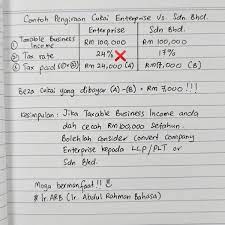 Contoh Pengiraan Cukai Enterprise Vs. Sdn Bhd.
Enterprise Sdn Bhd.
① Taxable Business Income RM 100,000 RM 100,000
② Tax rate 24% ❌ 17%
③ Tax paid (①×②) RM 24,000 (A) RM 17,000 (B)
Beza cukai yang dibayar (A) - (B) = RM 7,000 !!!
Kesimpulan : Jika Taxable Business Income anda
dah cecah RM100,000 setahun.
Bolehlah consider convert company
Enterprise kepada LLP/PLT or
Sdn Bhd.
Moga bermanfaat!!
# Ir. ARB (Ir. Abdul Rahman Bahasa)